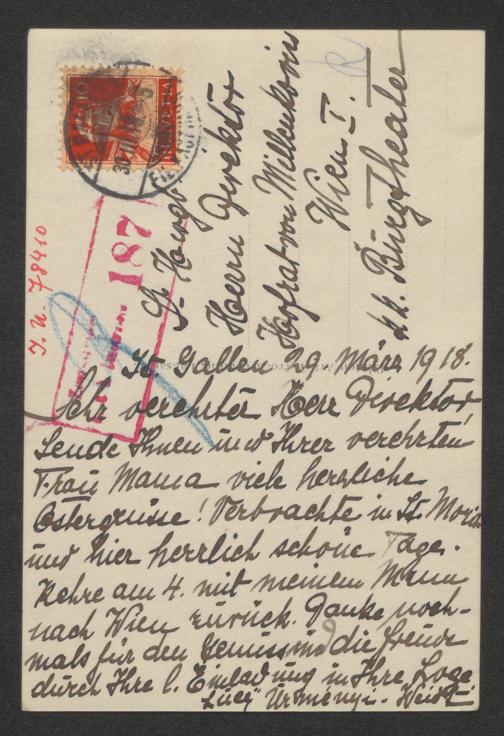 10
HELVETIA
30.III.18
I. N. 78410
187
Sr. Hochge
Herrn Direktor
Hofrat von Millenkovis
Wien I.
k. k. Burgtheater
St. Gallen 29. März 1918.
Sehr verehrter Herr Direktor,
Sende Ihnen und Ihrer verehrten
Frau Mama viele herzliche
Ostergrüsse! Verbrachte in St. Moriz
und hier herrlich schöne Tage.
Kehre am 4. mit meinem Mann
nach Wien zurück. Danke noch-
mals für den Genuss und die Freude
durch Ihre l. Einladung in Ihre Loge
Lucy Ürményi-Weidt